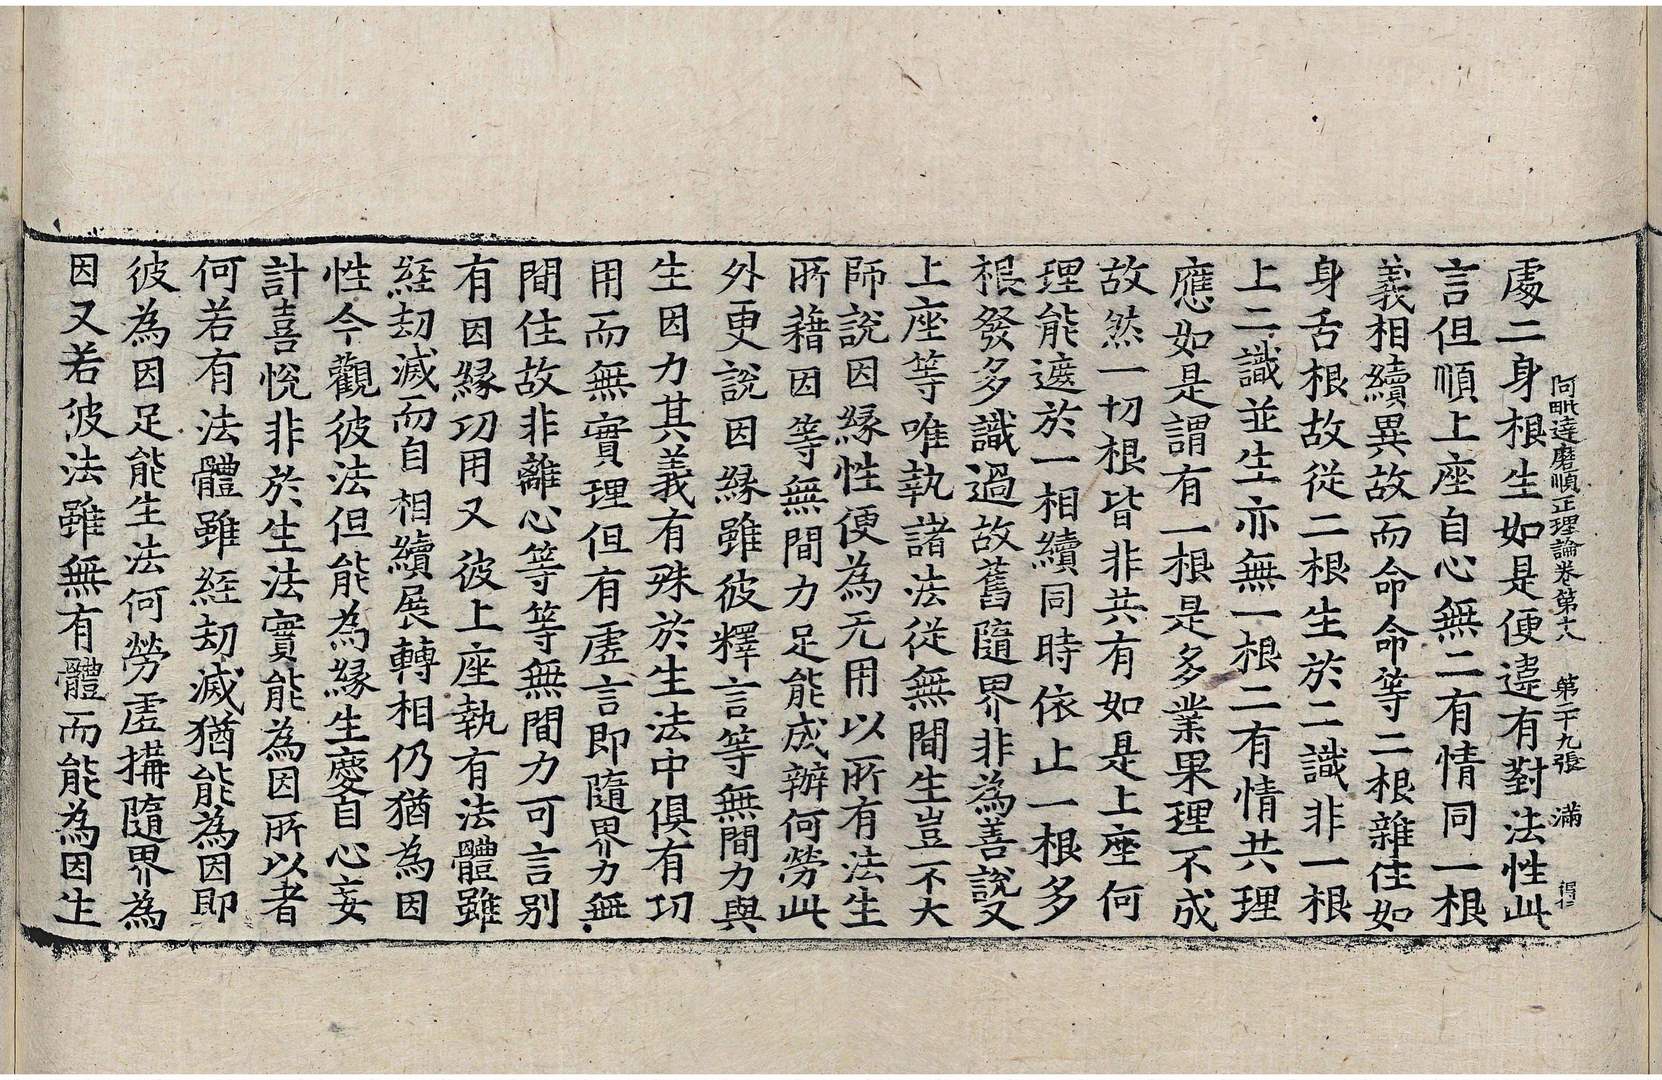 阿毗達磨順正理論卷第十八　第二十九張　滿　得仁
處二身根生如是便違有對法性此
言但順上座自心無二有情同一根
義相續異故而命命等二根雜住如
身舌根故從二根生於二識非一根
上二識並生亦無一根二有情共理
應如是謂有一根是多業果理不成
故然一切根皆非共有如是上座何
理能遮於一相續同時依止一根多
根發多識過故舊隨界非為善說又
上座等唯執諸法從無間生豈不大
師說因緣性便為无用以所有法生
所藉因等無間力足能成辦何勞此
外更說因緣雖彼釋言等無間力與
生因力其義有殊於生法中俱有功
用而無實理但有虛言即隨界力無
間住故非離心等等無間力可言別
有因緣功用又彼上座執有法體雖
經劫滅而自相續展轉相仍猶為因
性今觀彼法但能為緣生慶自心妄
計喜悅非於生法實能為因所以者
何若有法體雖經劫滅猶能為因即
彼為因足能生法何勞虛搆隨界為
因又若彼法雖無有體而能為因生